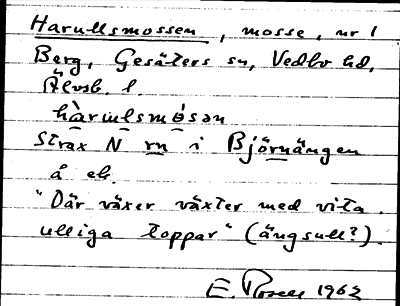 Harullsmossen, mosse, nr 1
Berg, Gesäters sn, Vedbo hd,
Älvsb. l.
hàrɯlsmósən
Strax N rn i Björnängen
å ek.
"Där växer växter med vita
ulliga toppar" (ängsull?).
E. Rosell 1962